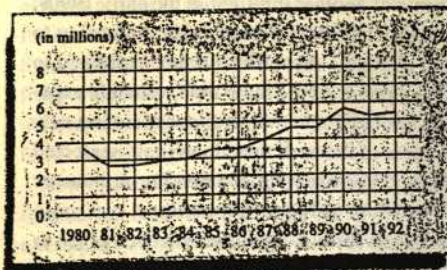 (in millions)
8
7
6
5
4
3
2
1
0
1980 81 82 83 84 85 86 87 88 89 90 91 92